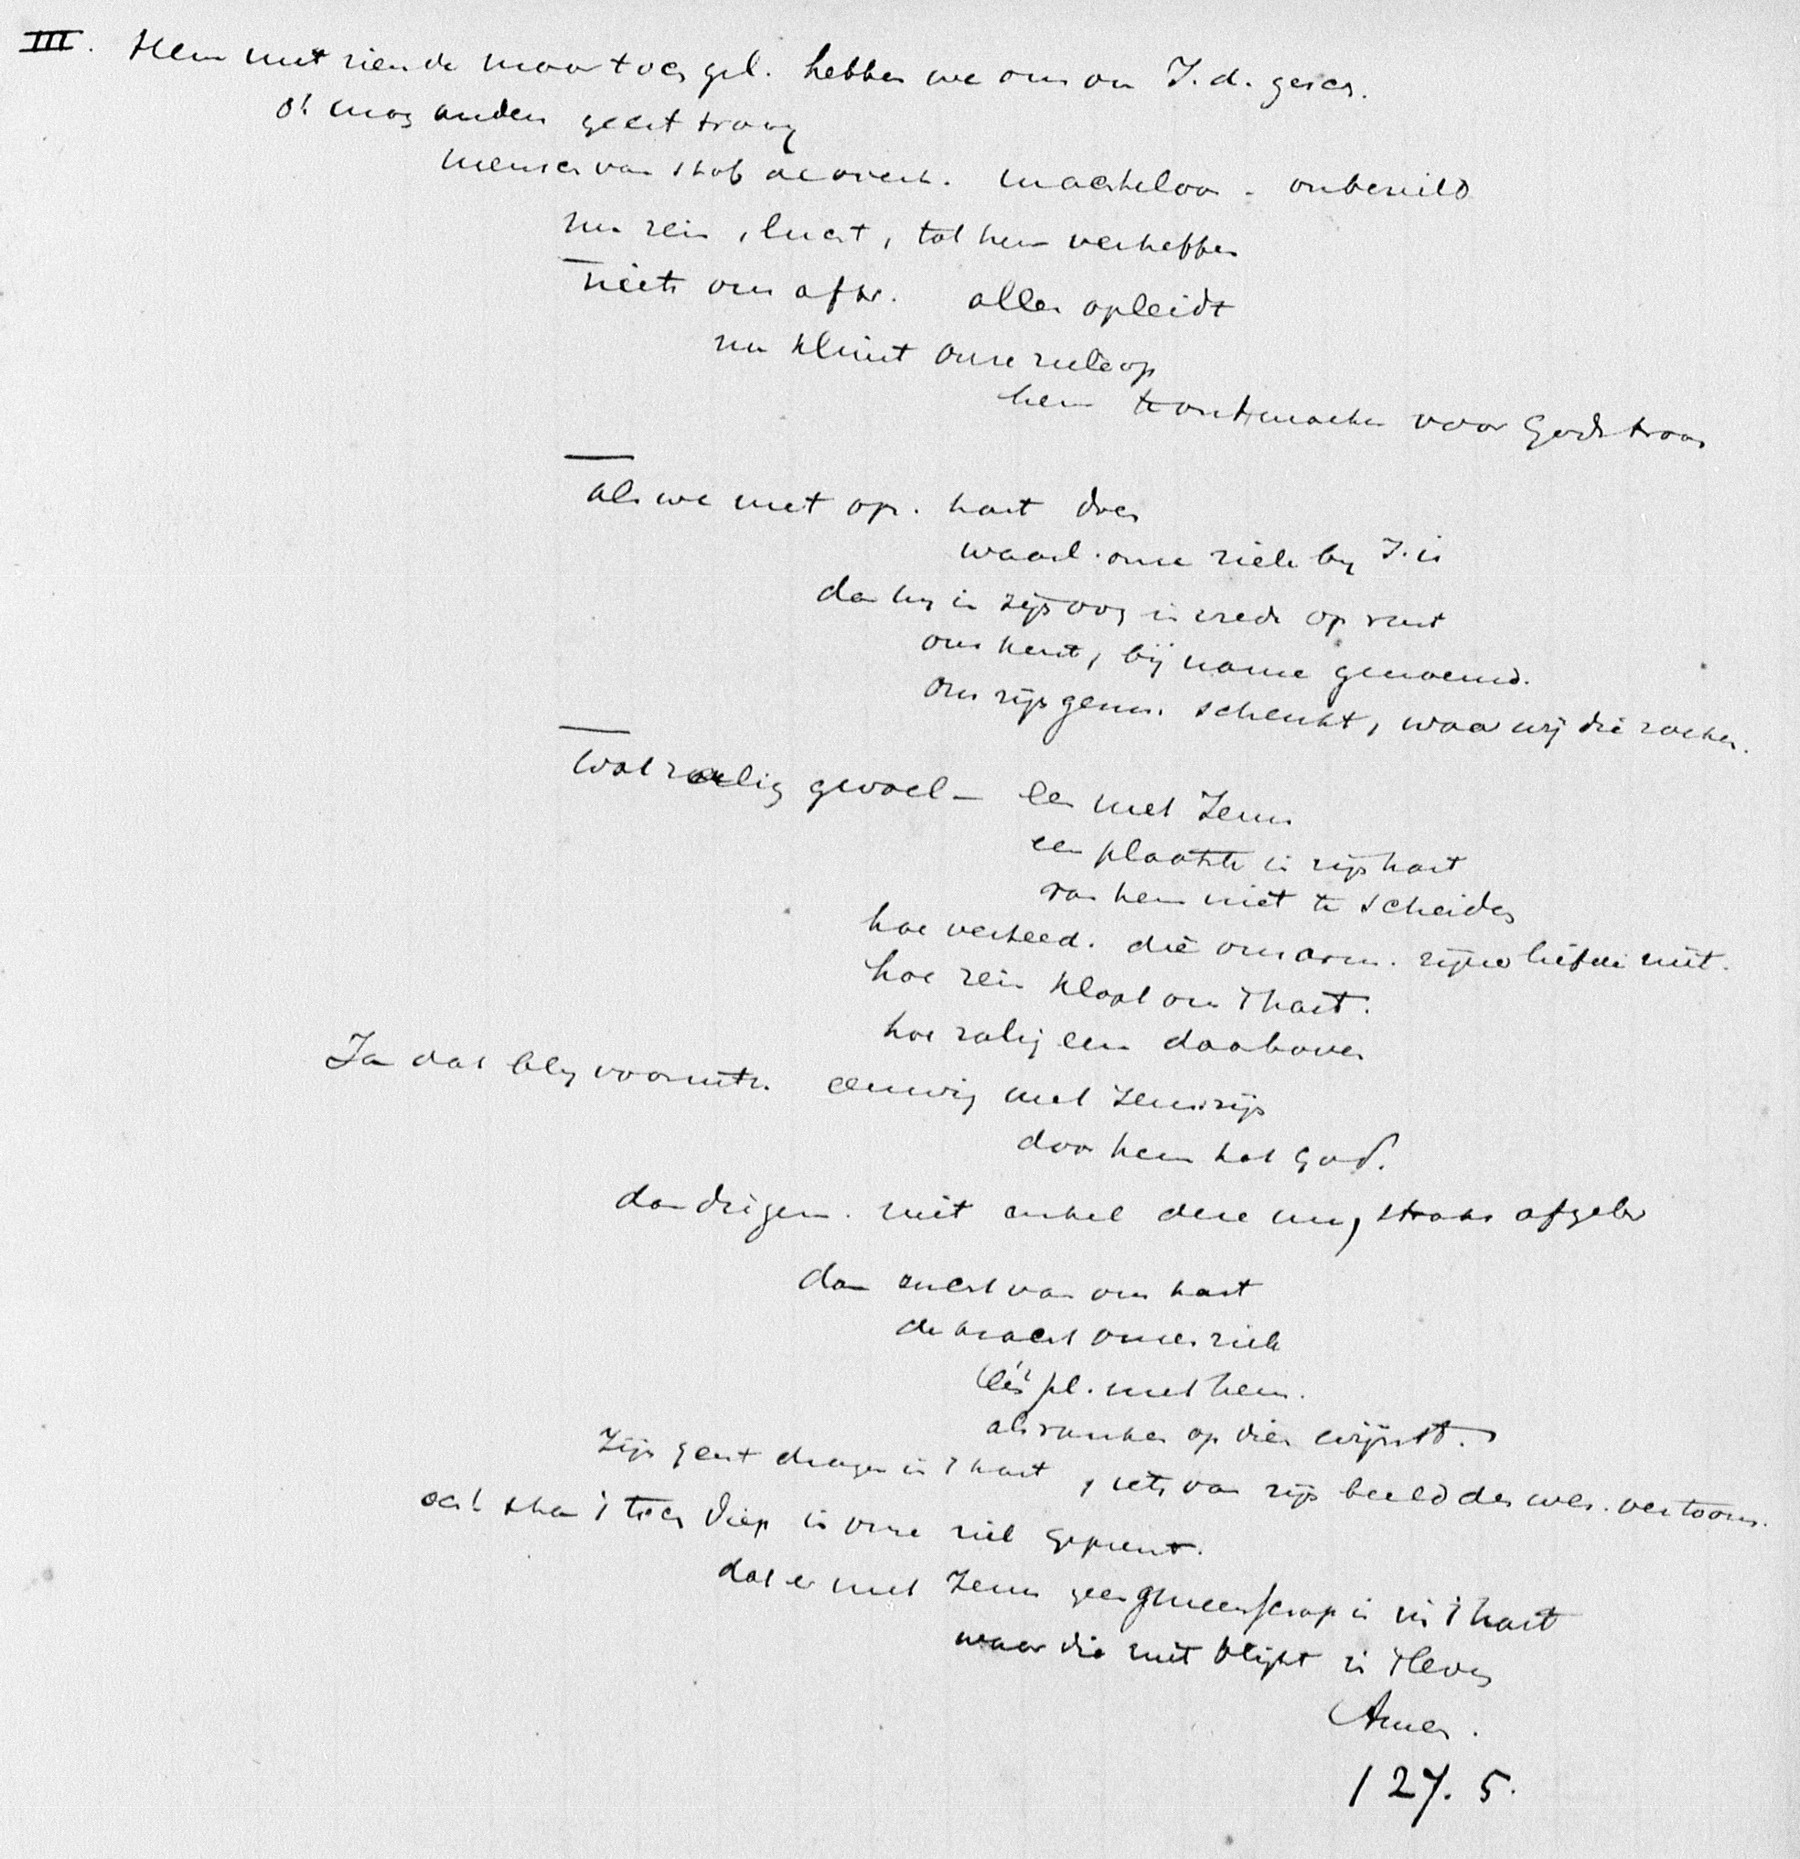 III. Hem niet ziende maar toch gel. hebben we ons om J. d. gesch.
o! mog anders geest traag
mensch van stof machteloos - onbezield
nu rein, lucht, tot hem verheffen
niets ons aftr. alles opleidt
nu klimt onze ziele op
hem te ontmoeten voor Gods troon
als we met opr. hart doen
waarl. onze ziele by J. is
dan hy in zijn oog in vrede op rust
ons kent, bij name genoemd.
ons zijn gem. schenkt, waar wij die zoeken.
Wat zalig gevoel - een met Jezus
een plaatste in zijn hart
van hem niet te scheiden
hoe verheed. die omarm. zijne liefde niet.
hoe rein klopt ons 't hart.
hoe zalig een daarboven
Ja dat bly vooruitz. eeuwig met Jezus zijn
door hem tot God.
dan die gem. niet enkel deze uur, straks afgebr
dan zucht van ons hart
de kracht onzer ziele
één pl. met hem.
als ranken op dien wijnst.
Zijn geest dragen in 't hart, iets van zijn beeld der wer. vertoonen.
och! sta 't toch diep in onze ziel geprent.
dat er met Jezus geen gmeenschap is in 't hart
waar die niet blijkt in 't leven
Amen.
127. 5.